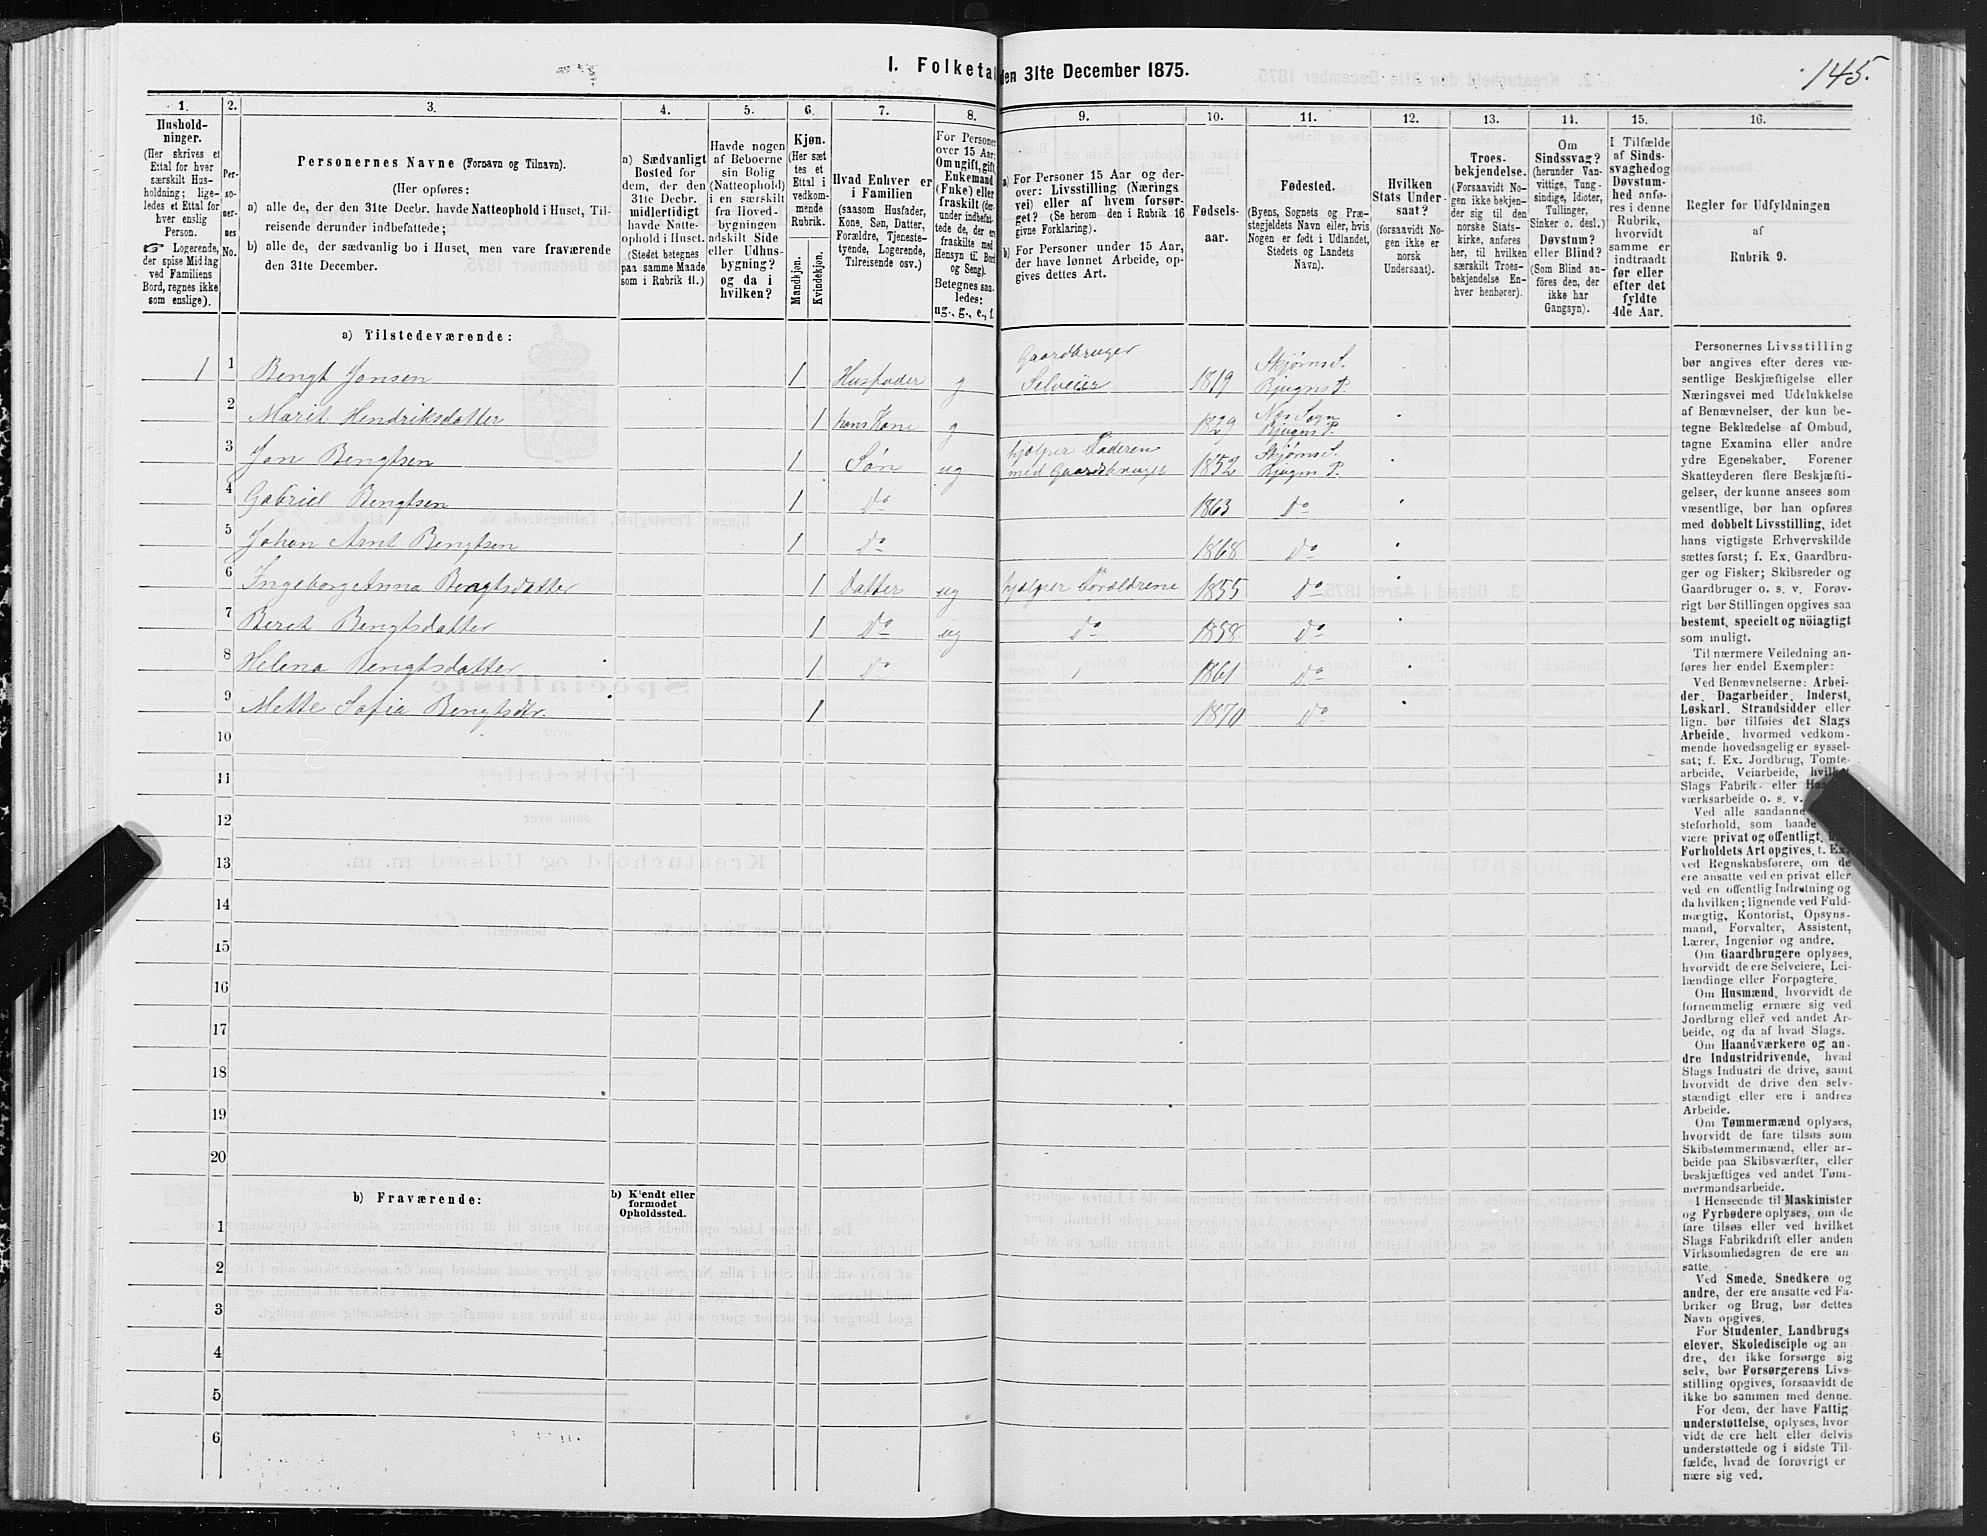 145.
I. Folketal den 31te December 1875.
1. 2. 3. 4. 5. 6. 7. 8. 9. 10. 11. 12. 13. 14. 15. 16.
Hushold-
ninger.
(Her skrives et
Ettal for hver
særskilt Hus-
holdning; lige-
ledes et Ettal for
hver enslig
Person.
☞ Logerende,
der spise Middag
ved Familiens
Bord, regnes ikke
som enslige).
Per-
so-
ner-
nes
No.
Personernes Navne (Fornavn og Tilnavn).
(Her opføres:
a) alle de, der den 31te Decbr. havde Natteophold i Huset, Til-
reisende derunder indbefattede;
b) alle de, der sædvanlig bo i Huset, men vare fraværende
den 31te December.
a) Sædvanligt
Bosted for
dem, der den
31te Decbr.
midlertidigt
havde Natte-
ophold i Huset.
(Stedet betegnes
paa samme Maade
som i Rubrik 11.)
Havde nogen
af Beboerne
sin Bolig
(Natteophold)
i en særskilt
fra Hoved-
bygningen
adskilt Side
eller Udhus-
bygning?
og da i
hvilken?
Kjøn.
(Her sæt
tes et
Ettal i
vedkom-
mende
Rubrik.
Mandkjøn.
Kvindekjøn.
Hvad Enhver er
i Familien
(saasom Husfader,
Kone, Søn, Datter,
Forældre, Tjeneste-
tyende, Logerende,
Tilreisende osv.)
For Personer
over 15 Aar:
Om ugift, gift,
Enkemand
(Enke) eller
fraskilt (der-
under indbefat-
tede de, der ere
fraskilte med
Hensyn til Bord
og Seng).
Betegnes saa-
ledes:
ug., g., e., f.
a) For Personer 15 Aar og der-
over: Livsstilling (Nærings
vei) eller af hvem forsør-
get? (Se herom den i Rubrik 16
givne Forklaring).
b) For Personer under 15 Aar,
der have lønnet Arbeide, op-
gives dettes Art.
Fødsels-
aar.
Fødested.
(Byens, Sognets og Præ-
stegjeldets Navn eller, hvis
Nogen er født i Udlandet,
Stedets og Landets
Navn).
Hvilken
Stats Under-
saat?
(forsaavidt No-
gen ikke er
norsk
Undersaat).
Troes-
bekjendelse.
(Forsaavidt No-
gen ikke bekjen-
der sig til den
norske Stats-
kirke, anføres
her, til hvilken
særskilt Troes-
bekjendelse En-
hver henhører).
Om
Sindssvag?
(herunder Van-
vittige, Tung-
sindige, Idioter,
Tullinger,
Sinker o. desl.)
Døvstum?
eller Blind?
(Som Blind an-
føres den, der
ikke har
Gangsyn).
I Tilfælde
af Sinds-
svaghed og
Døvstum-
hed anfø-
res i denne
Rubrik,
hvorvidt
samme er
indtraadt
før eller
efter det
fyldte
4de Aar.
Regler for Udfyldningen
af
Rubrik 9.
a) Tilstedeværende:
1 1 Bengt Jonsen 1 Husfader g Gaardbruger Selveier 1819 Skjørns S. Bjugns P.
2 Marit Hendriksdatter 1 hans Kone g 1829 Nes Sogn Bjugns P.
3 Jon Bengtsen 1 Søn ug hjælper Faderen med Gaardsbruget 1852 Skjørns S. Bjugns P.
4 Gabriel Bengtsen 1 Do 1863 Do
5 Johan Arnt Bengtsen 1 Do 1868 Do
6 Ingeborg Anna Bengtsdatter 1 Datter ug hjælper Foreldrene 1855 Do
7 Beret Bengtsdatter 1 Do ug Do 1858 Do
8 Helena Bengtsdatter 1 Do 1861 Do
9 Mette Sofia Bengtsdtr. 1 1870 Do
10
11
12
13
14
15
16
17
18
19
20
b) Fraværende:
b) Kjendt eller
formodet
Opholdssted.
1
2
3
4
5
6
Personernes Livsstilling
bør angives efter deres væ-
sentlige Beskjæftigelse eller
Næringsvei med Udelukkelse
af Benævnelser, der kun be-
tegne Beklædelse af Ombud,
tagne Examina eller andre
ydre Egenskaber. Forener
Skatteyderen flere Beskjæfti-
gelser, der kunne ansees som
væsentlige, bør han opføres
med dobbelt Livsstilling, idet
hans vigtigste Erhvervskilde
sættes først; f. Ex. Gaardbru-
ger og Fisker; Skibsreder og
Gaardbruger o. s. v. Forøv-
rigt bør Stillingen opgives saa
bestemt, specielt og nöiagtigt
som muligt.
Til nærmere Veiledning an-
føres her endel Exempler:
Ved Benævnelserne: Arbei-
der, Dagarbeider, Inderst,
Løskarl, Strandsidder eller
lign. bør tilføies det Slags
Arbeide, hvormed vedkom-
mende hovedsagelig er syssel-
sat; f. Ex. Jordbrug, Tomte-
arbeide, Veiarbeide, hvilket
Slags Fabrik- eller
værksarbeide o. s. v.
Ved alle saadanne
steforhold, som baade
være privat og offentligt,
Forholdets Art opgives, f. Ex.
ved Regnskabsførere, om de
ere ansatte ved en privat eller
ved en offentlig Indretning og
da hvilken; lignende ved Fuld-
mægtig, Kontorist, Opsyns-
mand, Forvalter, Assistent,
Lærer, Ingeniør og andre.
Om Gaardbrugere oplyses,
hvorvidt de ere Selveiere, Lei-
lændinge eller Forpagtere.
Om Husmænd, hvorvidt de
fornemmelig ernære sig ved
Jordbrug eller ved andet Ar-
beide, og da af hvad Slags.
Om Haandværkere og an-
dre Industridrivende, hvad
Slags Industri de drive, samt
hvorvidt de drive den selv-
stændigt eller ere i andres
Arbeide.
Om Tømmermænd oplyses,
hvorvidt de fare tilsøs som
Skibstømmermænd, eller ar-
beide paa Skibsværfter, eller
beskjæftiges ved andet Tøm-
mermandsarbeide.
I Henseende til Maskinister
og Fyrbødere oplyses, om de
fare tilsøs eller ved hvilket
Slags Fabrikdrift eller anden
Virksomhedsgren de ere an-
satte.
Ved Smede, Snedkere og
andre, der ere ansatte ved Fa-
briker og Brug, bør dettes
Navn opgives.
For Studenter, Landbrugs
elever, Skoledisciple og an-
dre, der ikke forsørge sig
selv, bør Forsørgerens Livs-
stilling opgives, forsaavidt de
ikke bo sammen med denne.
For dem, der have Fattig-
understøttelse, oplyses, hvor-
vidt de ere helt eller delvis
understøttede og i sidste Til-
fælde, hvad de forøvrigt er
nære sig ved.